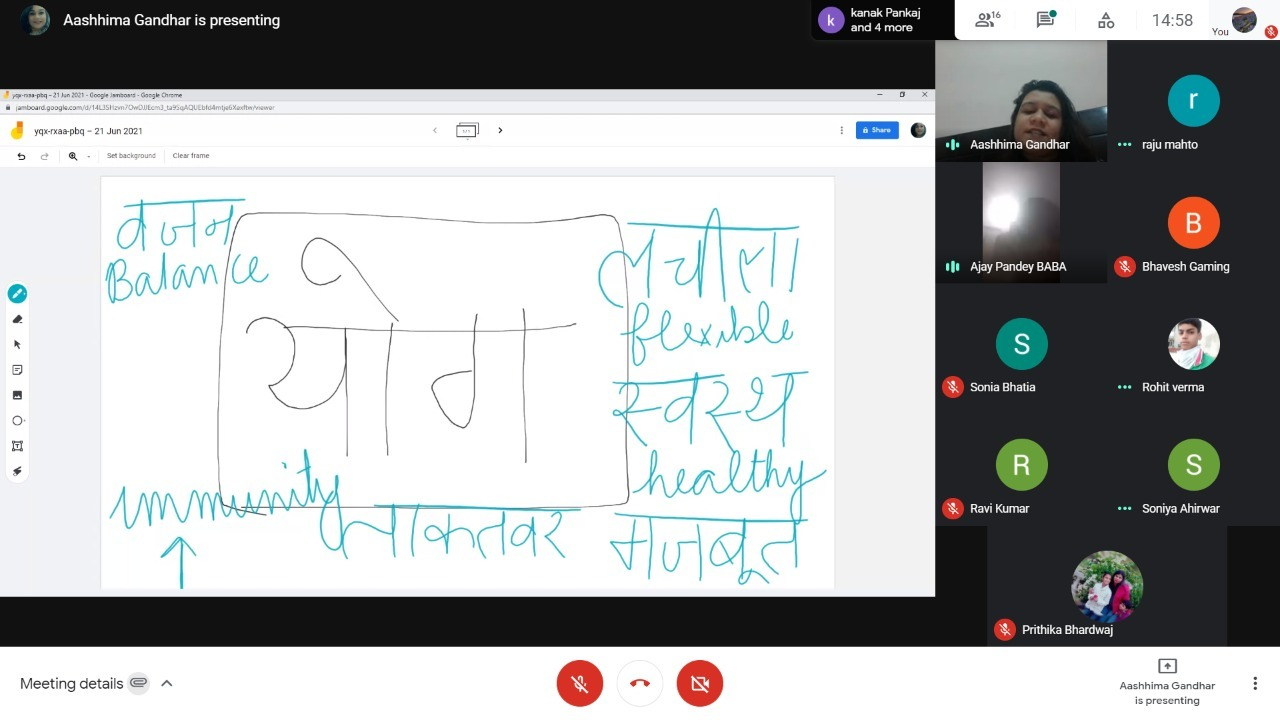 Aashhima Gandhar is presenting
k
kanak Pankaj
and 4 more
16
14:58
You
yqx-rxaa-pbq – 21 Jun 2021 - Google Jamboard - Google Chrome
yqx-rxaa-pbq – 21 Jun 2021
1/1
Share
Set background
Clear frame
वजन
Balance
योग
लचीला
flexible
स्वस्थ
healthy
immunity
ताकतवर
मजबूत
Aashhima Gandhar
r
raju mahto
Ajay Pandey BABA
B
Bhavesh Gaming
S
Sonia Bhatia
Rohit verma
R
Ravi Kumar
S
Soniya Ahirwar
Prithika Bhardwaj
Meeting details
Aashhima Gandhar
is presenting